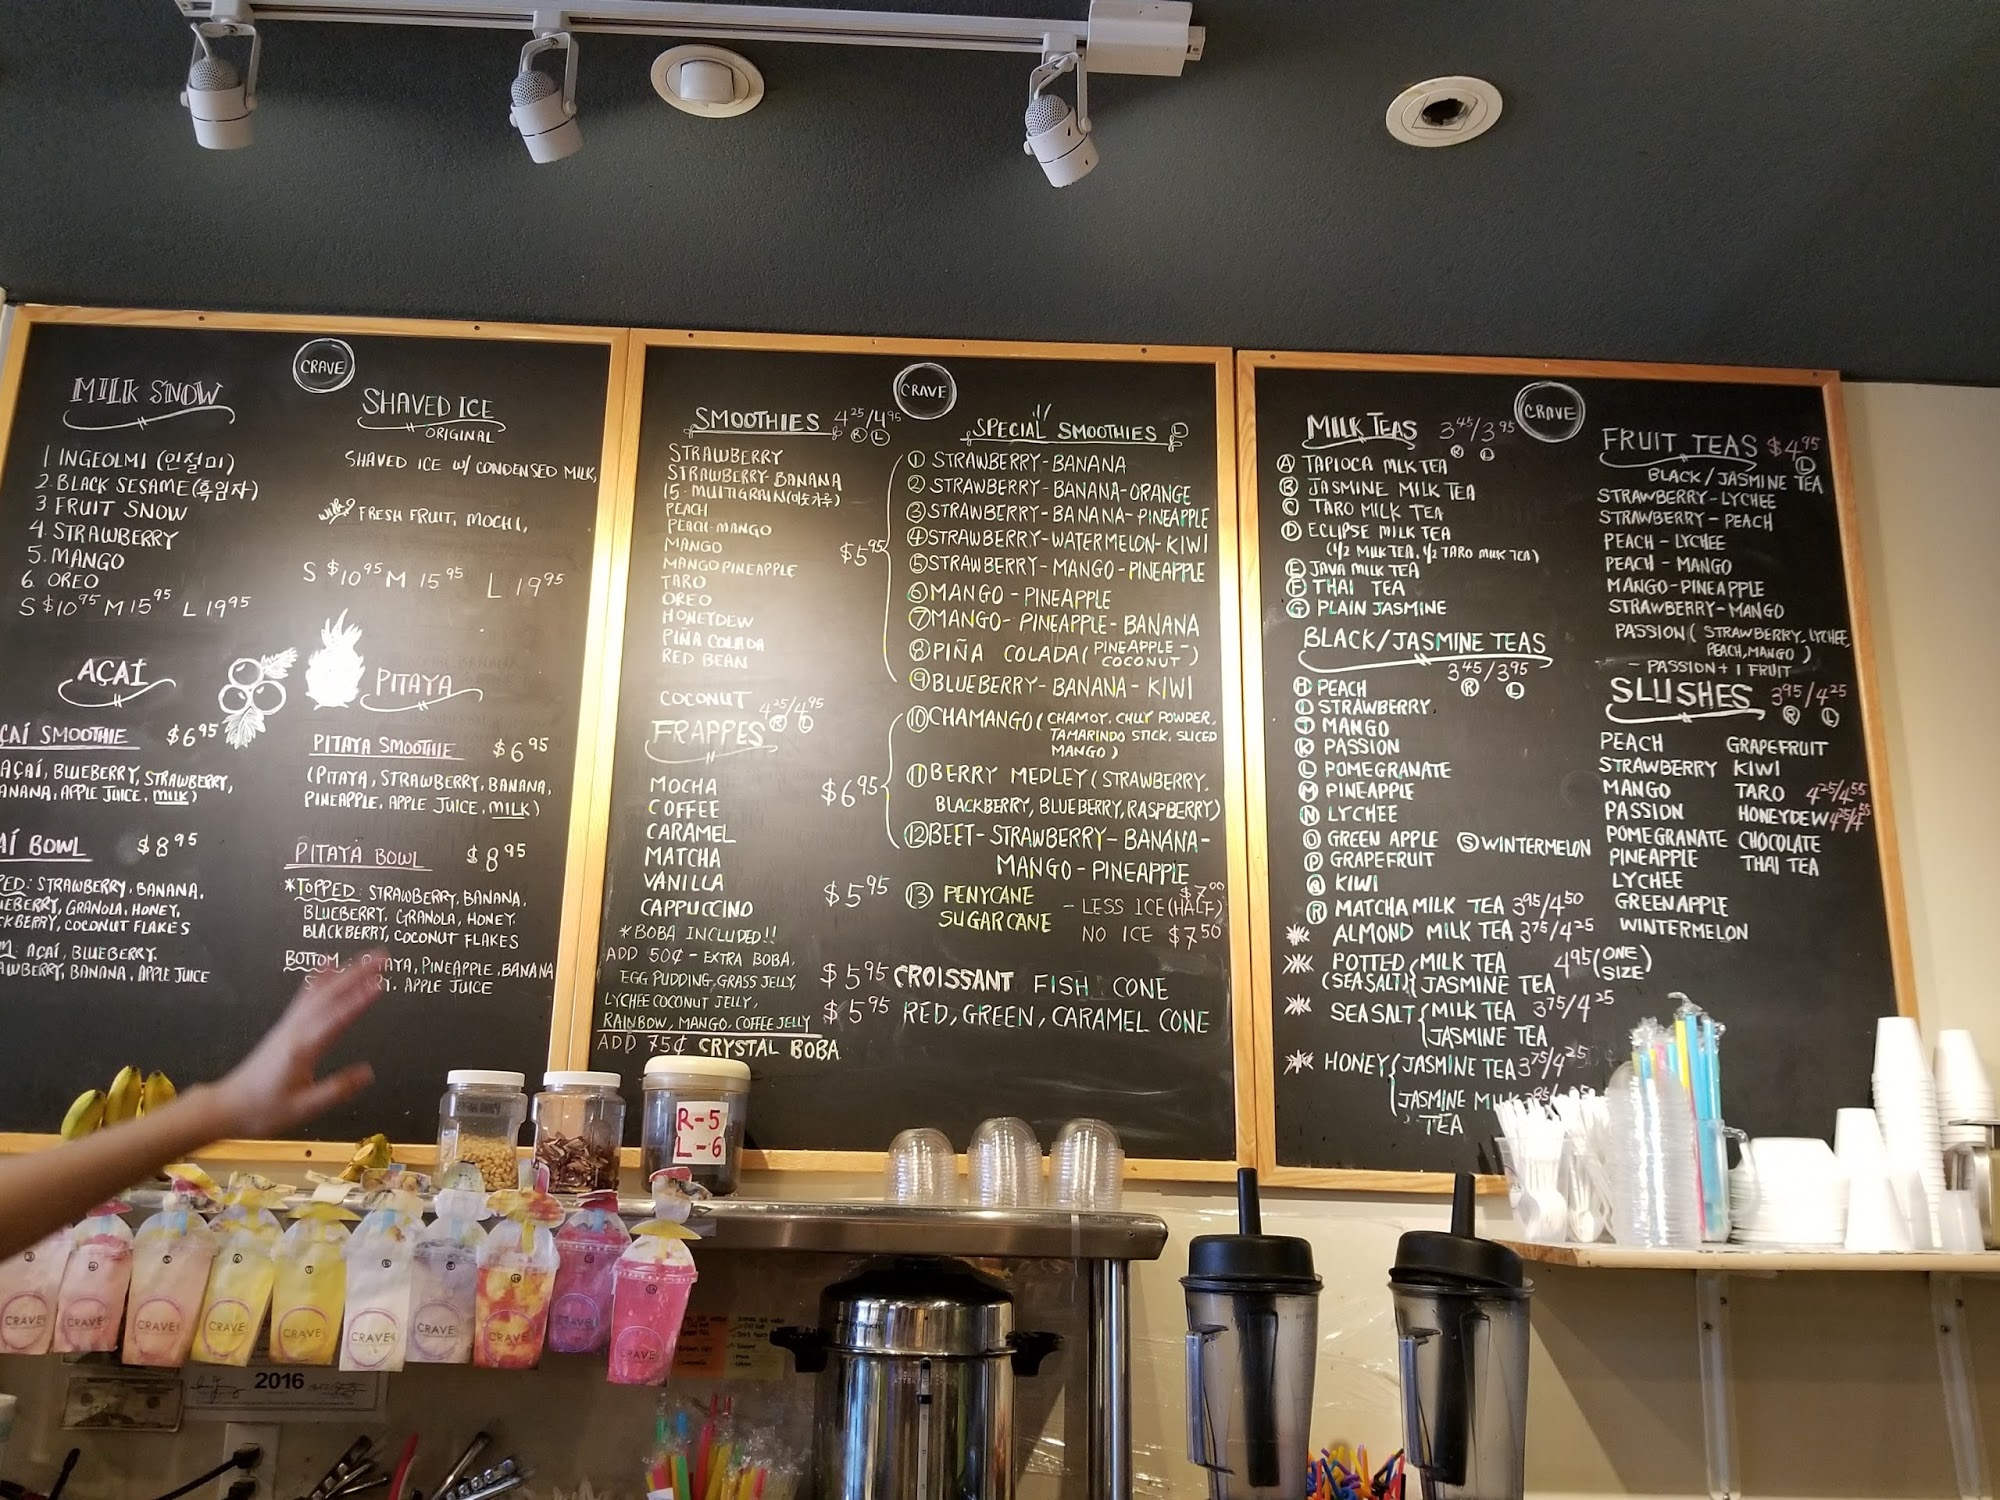 CRAVE
MILK SNOW
1 INGEOLMI (인절미)
2. BLACK SESAME (흑임자)
3 FRUIT SNOW
4. STRAWBERRY
5. MANGO
6 OREO
S $10.95 M 15.95 L 19.95
SHAVED ICE
ORIGINAL
SHAVED ICE W/ CONDENSED MILK,
FRESH FRUIT, MOCHI,
S $10.95 M 15.95 L 19.95
AÇAÍ
ÇAÍ SMOOTHIE $6.95
AÇAÍ, BLUEBERRY, STRAWBERRY,
ANANA, APPLE JUICE, MILK)
AÍ BOWL $8.95
PED: STRAWBERRY, BANANA,
UEBERRY, GRANOLA, HONEY,
CKBERRY, COCONUT FLAKES
M: AÇAÍ, BLUEBERRY,
AWBERRY, BANANA, APPLE JUICE
PITAYA
PITAYA SMOOTHIE $6.95
(PITAYA, STRAWBERRY, BANANA,
PINEAPPLE, APPLE JUICE, MILK)
PITAYA BOWL $8.95
*TOPPED: STRAWBERRY, BANANA,
BLUEBERRY, GRANOLA, HONEY,
BLACKBERRY, COCONUT FLAKES
BOTTOM: PITAYA, PINEAPPLE, BANANA
RY, APPLE JUICE
CRAVE
SMOOTHIES 4.25/4.95
R L
STRAWBERRY
STRAWBERRY-BANANA
15-MULTIGRAIN (미숫가루)
PEACH
PEACH-MANGO
MANGO
MANGO PINEAPPLE
TARO
OREO
HONEYDEW
PIÑA COLADA
RED BEAN
COCONUT
FRAPPES 4.25/4.95
R L
MOCHA
COFFEE
CARAMEL
MATCHA
VANILLA
CAPPUCCINO
*BOBA INCLUDED!!
ADD 50¢ - EXTRA BOBA,
EGG PUDDING, GRASS JELLY,
LYCHEE COCONUT JELLY,
RAINBOW, MANGO, COFFEE JELLY
ADD 75¢ CRYSTAL BOBA
SPECIAL SMOOTHIES L
$5.95
① STRAWBERRY-BANANA
② STRAWBERRY-BANANA-ORANGE
③ STRAWBERRY-BANANA-PINEAPPLE
④ STRAWBERRY-WATERMELON-KIWI
⑤ STRAWBERRY-MANGO-PINEAPPLE
⑥ MANGO-PINEAPPLE
⑦ MANGO-PINEAPPLE-BANANA
⑧ PIÑA COLADA (PINEAPPLE-
COCONUT)
⑨ BLUEBERRY-BANANA-KIWI
$6.95
⑩ CHAMANGO (CHAMOY, CHILY POWDER,
TAMARINDO STICK, SLICED
MANGO)
⑪ BERRY MEDLEY (STRAWBERRY,
BLACKBERRY, BLUEBERRY, RASPBERRY)
⑫ BEET-STRAWBERRY-BANANA-
MANGO-PINEAPPLE
$5.95 ⑬ PENYCANE
SUGARCANE
- LESS ICE (HALF) $7.00
NO ICE $7.50
$5.95 CROISSANT FISH CONE
$5.95 RED, GREEN, CARAMEL CONE
CRAVE
MILK TEAS 3.45/3.95
R L
A TAPIOCA MLK TEA
B JASMINE MILK TEA
C TARO MILK TEA
D ECLIPSE MILK TEA
(1/2 MILK TEA, 1/2 TARO MILK TEA)
E JAVA MILK TEA
F THAI TEA
G PLAIN JASMINE
BLACK/JASMINE TEAS
3.45/3.95
R L
H PEACH
I STRAWBERRY
J MANGO
K PASSION
L POMEGRANATE
M PINEAPPLE
N LYCHEE
O GREEN APPLE S WINTERMELON
P GRAPEFRUIT
Q KIWI
R MATCHA MILK TEA 3.95/4.50
ALMOND MILK TEA 3.75/4.25
POTTED (SEASALT) { MILK TEA 4.95 (ONE SIZE)
JASMINE TEA
SEASALT { MILK TEA 3.75/4.25
JASMINE TEA
HONEY { JASMINE TEA 3.75/4.25
JASMINE MILK
TEA
FRUIT TEAS $4.95
L
BLACK/JASMINE TEA
STRAWBERRY-LYCHEE
STRAWBERRY-PEACH
PEACH-LYCHEE
PEACH-MANGO
MANGO-PINEAPPLE
STRAWBERRY-MANGO
PASSION (STRAWBERRY, LYCHEE,
PEACH, MANGO)
- PASSION + 1 FRUIT
SLUSHES 3.95/4.25
R L
PEACH GRAPEFRUIT
STRAWBERRY KIWI
MANGO TARO 4.25/4.55
PASSION HONEYDEW 4.25/4.55
POMEGRANATE CHOCOLATE
PINEAPPLE THAI TEA
LYCHEE
GREEN APPLE
WINTERMELON
R-5
L-6
CRAVE
CRAVE
CRAVE
CRAVE
CRAVE
CRAVE
CRAVE
CRAVE
CRAVE
CRAVE
2016